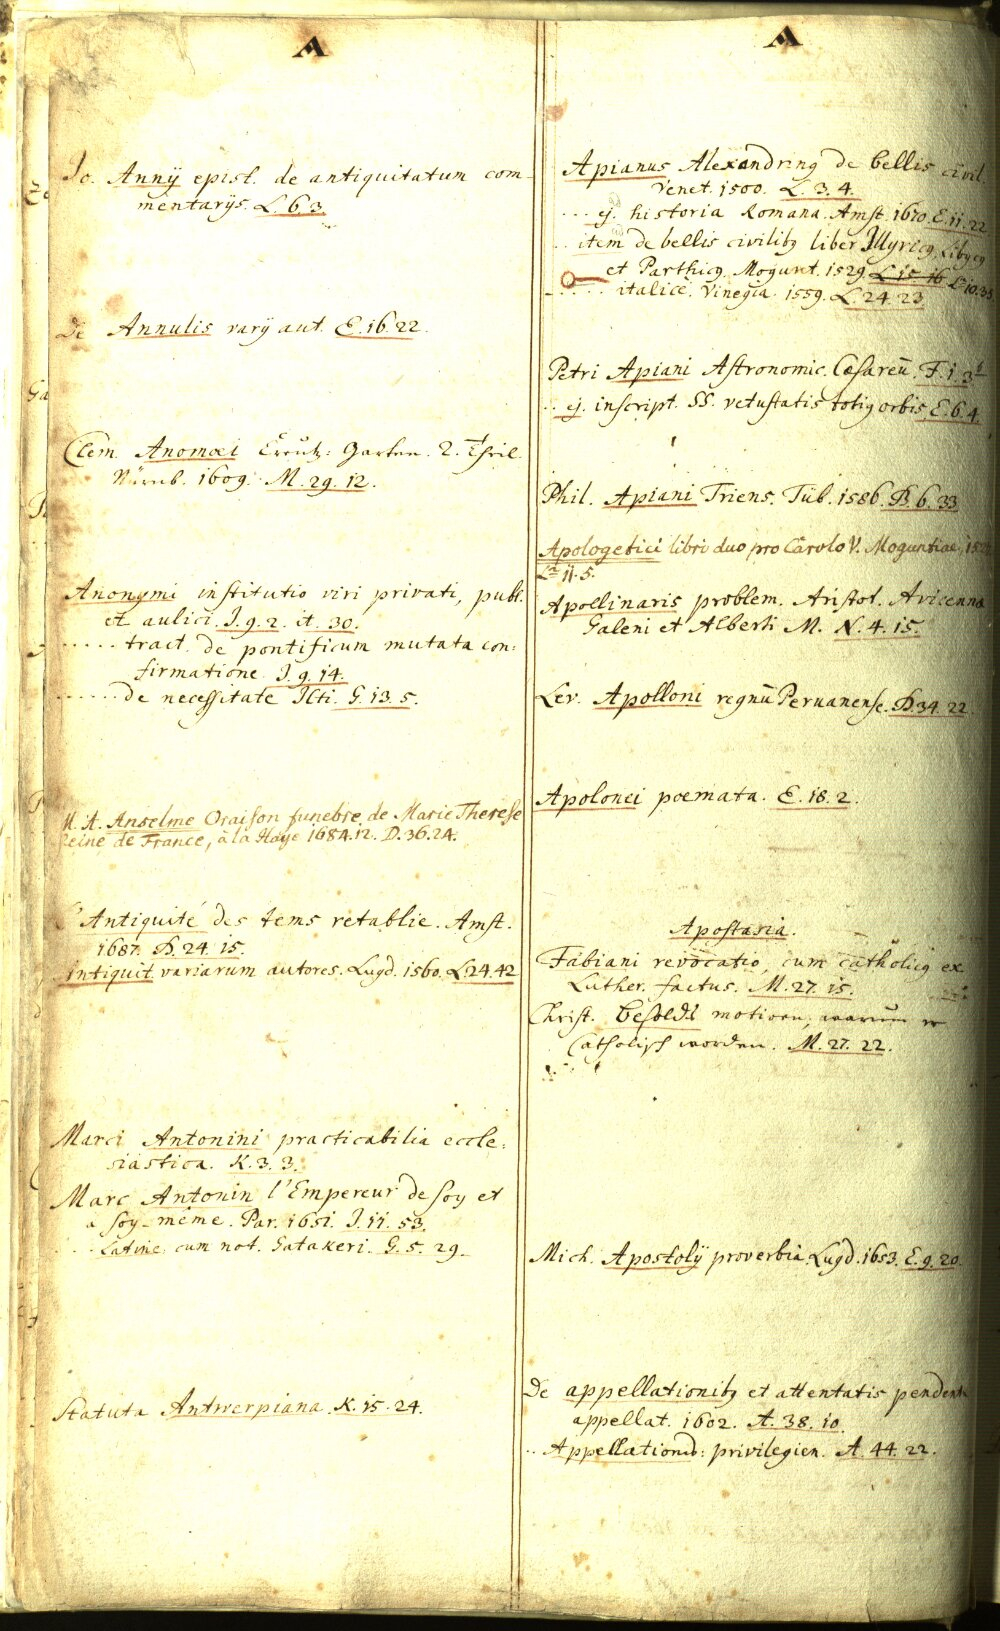 A
Jo. Annij epist. de antiquitatum com-
mentarijs. L. 6. 3.
De Annulis varij aut. E. 16. 22.
Clem. Anomœi Creütz: Garten. 2. Theil.
Nürnb. 1609. M. 29. 12.
Anonymi institutio viri privati, publ.
et aulici. J. 9. 2. it. 30.
..... tract. de pontificum mutata con:
firmatione. J. 9. 14.
...... de necessitate Jcti. G. 13. 5.
M. A. Anselme Oraison funebre de Marie Therese
Reine de France, à la Haye 1684. 12. D. 36. 24.
L'Antiquité des tems retablie. Amst.
1687. D. 24. 15.
Antiquit. variarum autores. Lugd. 1560. L. 24. 42
Marci Antonini practicabilia eccle:
siastica. K. 3. 3.
Marc Antonin l'Empereur de soy et
a soy-même. Par. 1651. J. 11. 53.
Latine cum not. Gatakeri. G. 5. 29.
Statuta Antwerpiana. K. 15. 24.
A
Apianus Alexandrinq de bellis civil.
Venet. 1500. L. 3. 4.
... ej. historia Romana. Amst. 1670. E. 11. 22
.. item de bellis civilibq liber Illyricq, Libycq
et Parthicq. Mogunt. 1529. L. 15. 16 L. 10. 35
..... italicè. Vinegia. 1559. L. 24. 23
Petri Apiani Astronomic. Cæsareũ. F. 1. 3
.. ej. inscript. SS. vetustatis totiq orbis. E. 6. 4.
Phil. Apiani Triens. Tüb. 1586. D. 6. 33
Apologetici libri duo pro Carolo V. Moguntiae
L. 11. 5.
Apollinaris problem. Aristot. Avicenna
Galeni et Alberti M. N. 4. 15.
Lev. Apolloni regnũ Peruanense. D. 34. 22.
Apolonei poemata. E. 18. 2.
Apostasia.
Fabiani revocatio, cum catholicq ex
Luther. factus. M. 27. 15.
Christ. Besoldi motiven, warum er
Catholisch worden. M. 27. 22.
Mich. Apostolij proverbia. Lugd. 1653. E. 9. 20.
De appellationibq et attentatis pendente
appellat. 1602. A. 38. 10.
.. Appellations: privilegien. A. 44. 22.